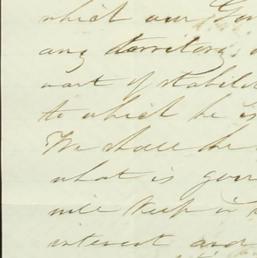 which our Gov
any territory, o
want of stabili
to which he is
We shall be
what is goin
will keep in
interest and